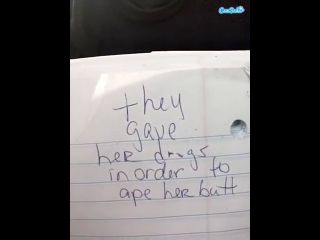 they
gave
her drugs
in order to
ape her butt